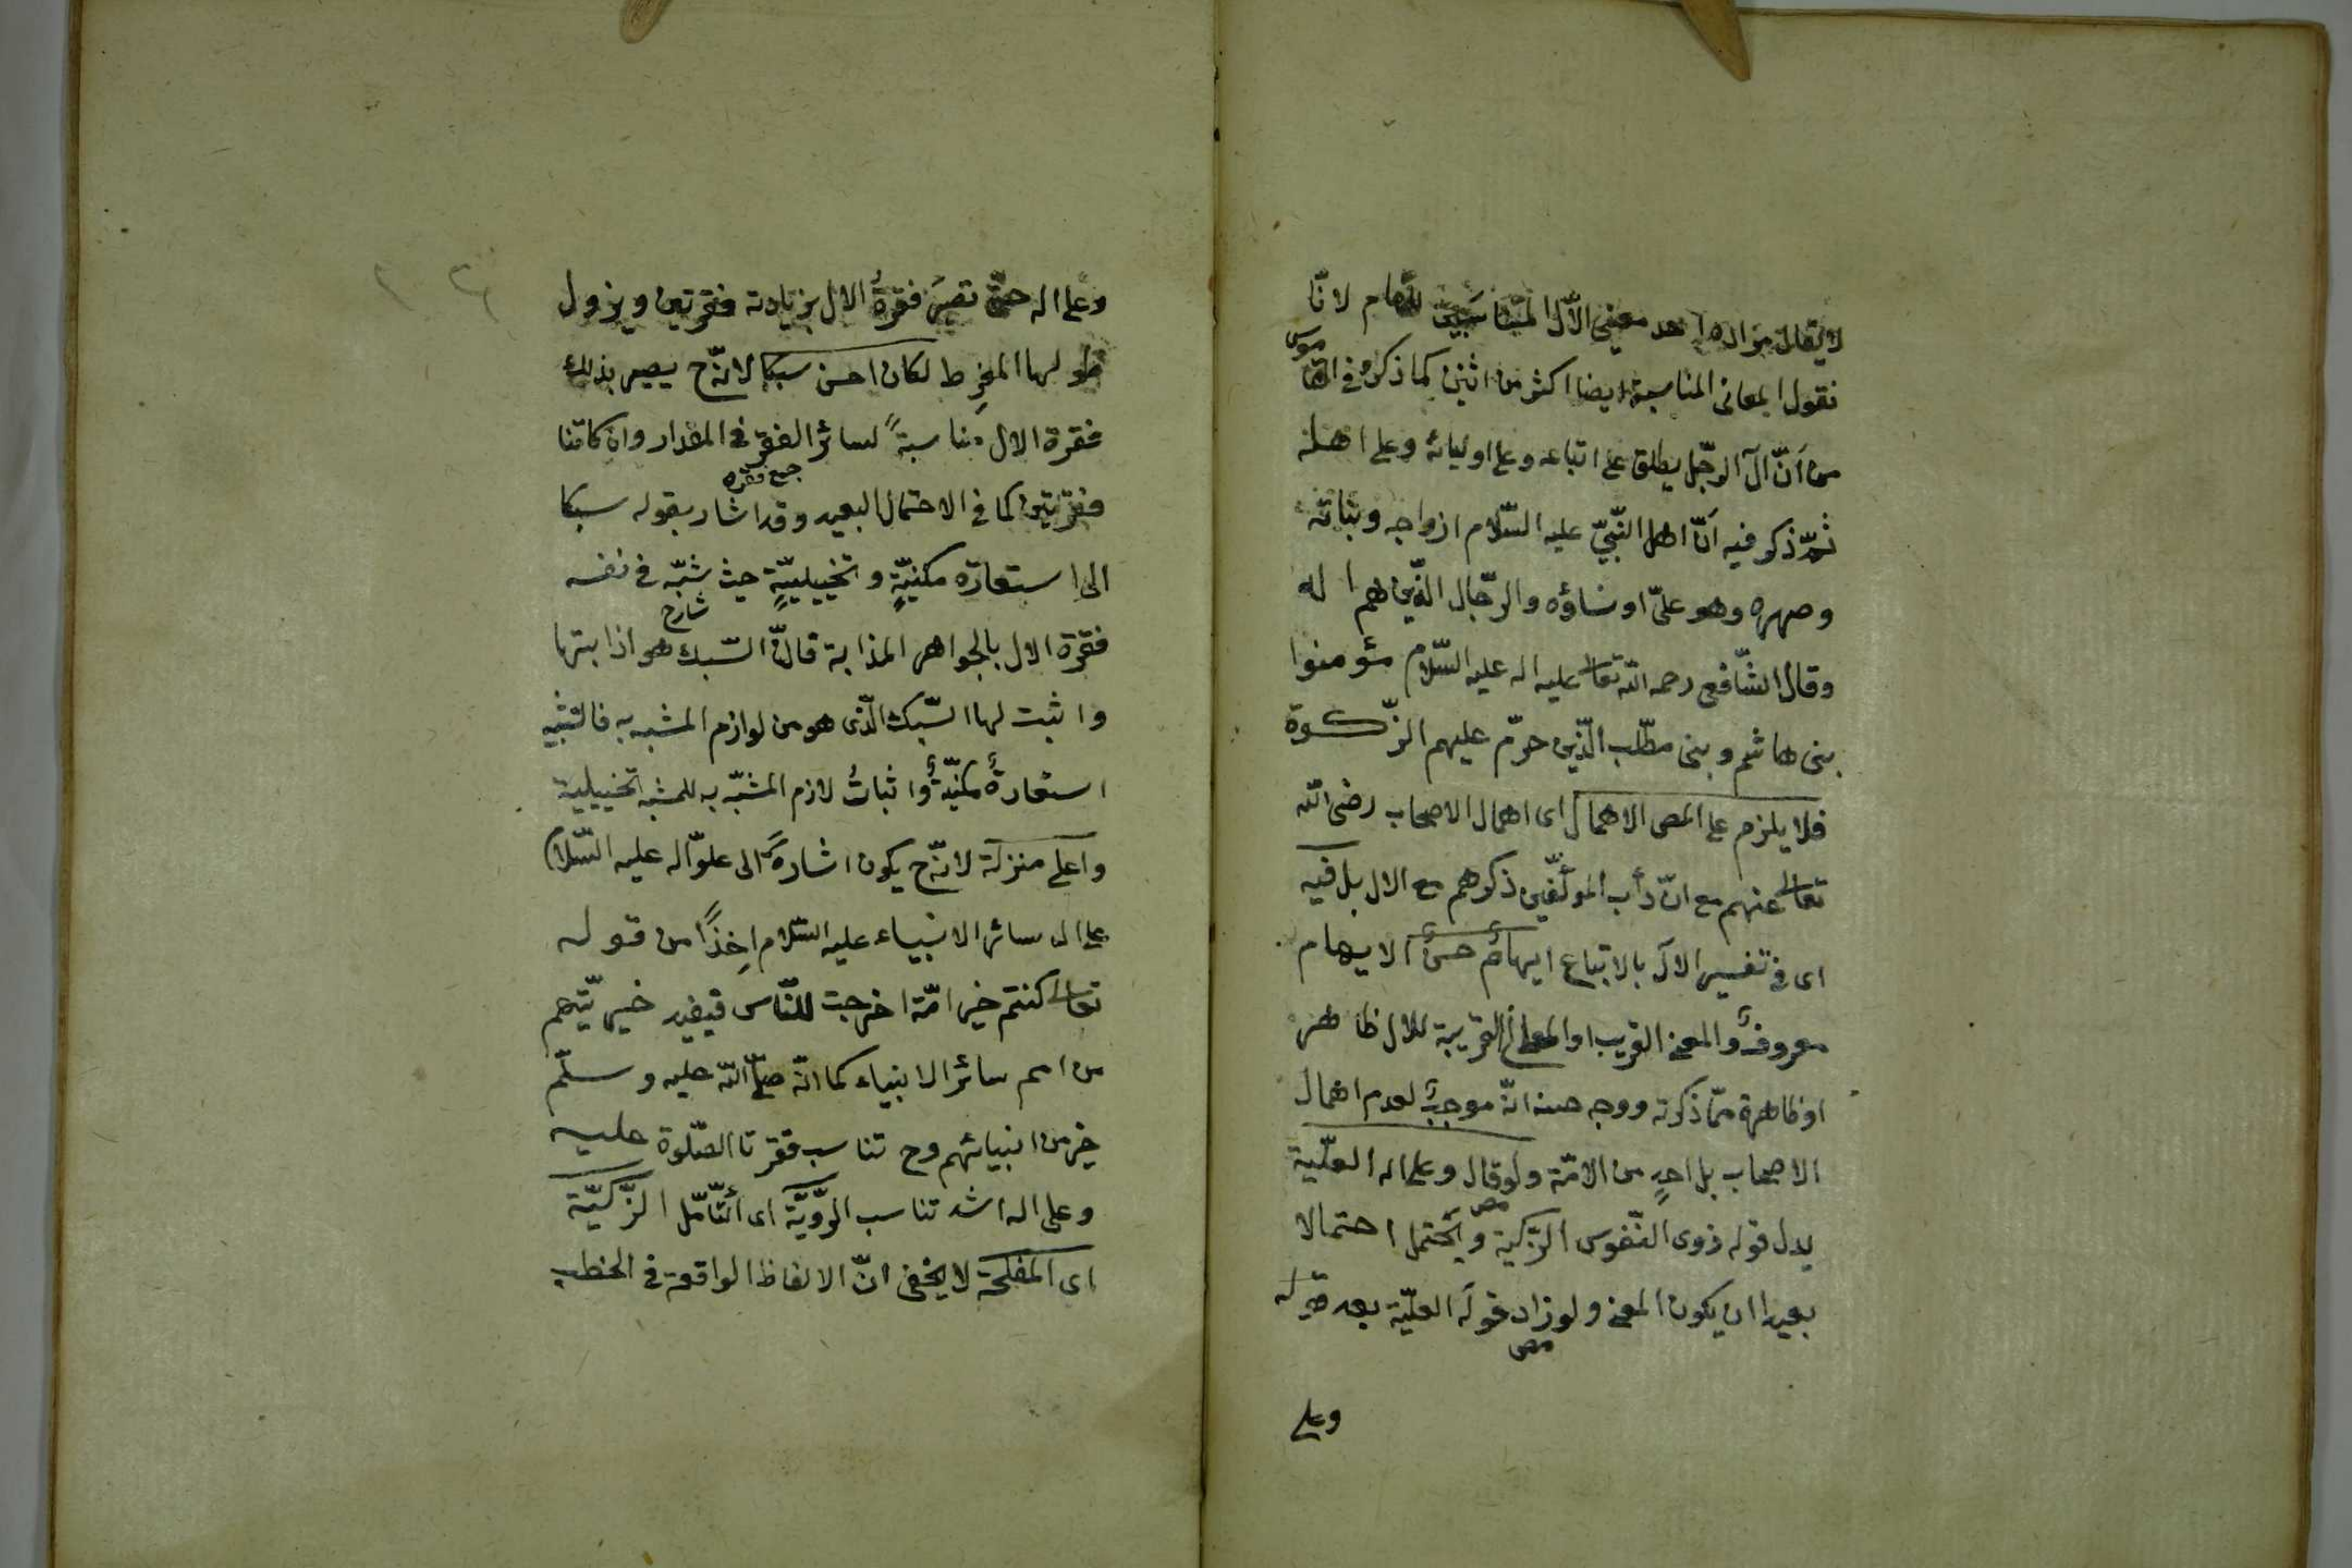 لا يقال مراده احد معنى الآل المتناسبين للمقام لانّا
نقول المعانى المناسبة ايضا اكثر من اثنين كما ذكره فى القاموس
من اَنّ آل الرجّل يطلق على اتباعه وعلى اوليائه وعلى اهله
ثمّ ذكر فيه اَنّ اهل النّبىّ عليه السّلام ازواجه وبناته
وصهره وهو علىّ او نساؤه والرّجال الّذين هم اله
وقال الشّافعى رحمه الله تعالى عليه اله عليه السّلام مؤمنوا
بنى هاشم وبنى مطّلب الّذين حرّم عليهم الزّكوة
فلا يلزم على المص الاهمال اى اهمال الاصحاب رضى الله
تعالى عنهم مع انّ دأب المؤلّفين ذكرهم مع الال بل فيه
اى فى تفسير الآل بالاتباع ايهامٌ حسنٌ الايهام
معروفٌ والمعنى القريب او المعانى القريبة للال ظاهر
او ظاهرة ممّا ذكرته ووجه حسنه انّه موجبٌ لعدم اهمال
الاصحاب بل احدٍ من الامّة ولو قال وعلى اله العليّة
مص
بدل قوله ذوى النّفوس الزّكية ويحتمل احتمالا
بعيدا ان يكون المعنى ولو زاد قوله العليّة بعد قوله
مص
وعلى
وعلى اله حتّى تصير فقرةُ الال بزيادته فقرتين ويزول
طولها المفرِط لكان احسن سبكا لانّه ح يصير بذلك
فقرة الال مناسبةً لسائر الفقر فى المقدار وان كانتا
جمع فقره
فقرتين كما فى الاحتمال البعيد وقد اشار بقوله سبكا
الى استعارة مكنيّةٍ وتخييليّةٍ حيث شبّه فى نفسه
شارح
فقرة الال بالجواهر المذابة قال السّبك هو اذابتها
واثبت لها السّبك الّذى هو من لوازم المشبه به فالتشبيه
استعارةٌ مكنيّةٌ واثباتُ لازم المشبّه به للمشبه تخييلية
واعلى منزلة لانّه ح يكون اشارةً الى علوّ اله عليه السّلام
على ال سائر الانبياء عليه السّلام اخِذًا من قوله
تعالى كنتم خير امّة اخرجت للنّاس فيفيد خيريّتهم
من امم سائر الانبياء كما انّه صلّى الله عليه وسلّم
خير من انبيائهم وح تناسب فقرتا الصّلوة عليه
وعلى اله اشد تناسب الرّويّة اى التّأمّل الزّكيّة
اى المفلحة لا يخفى انّ الالفاظ الواقعة فى الخطب